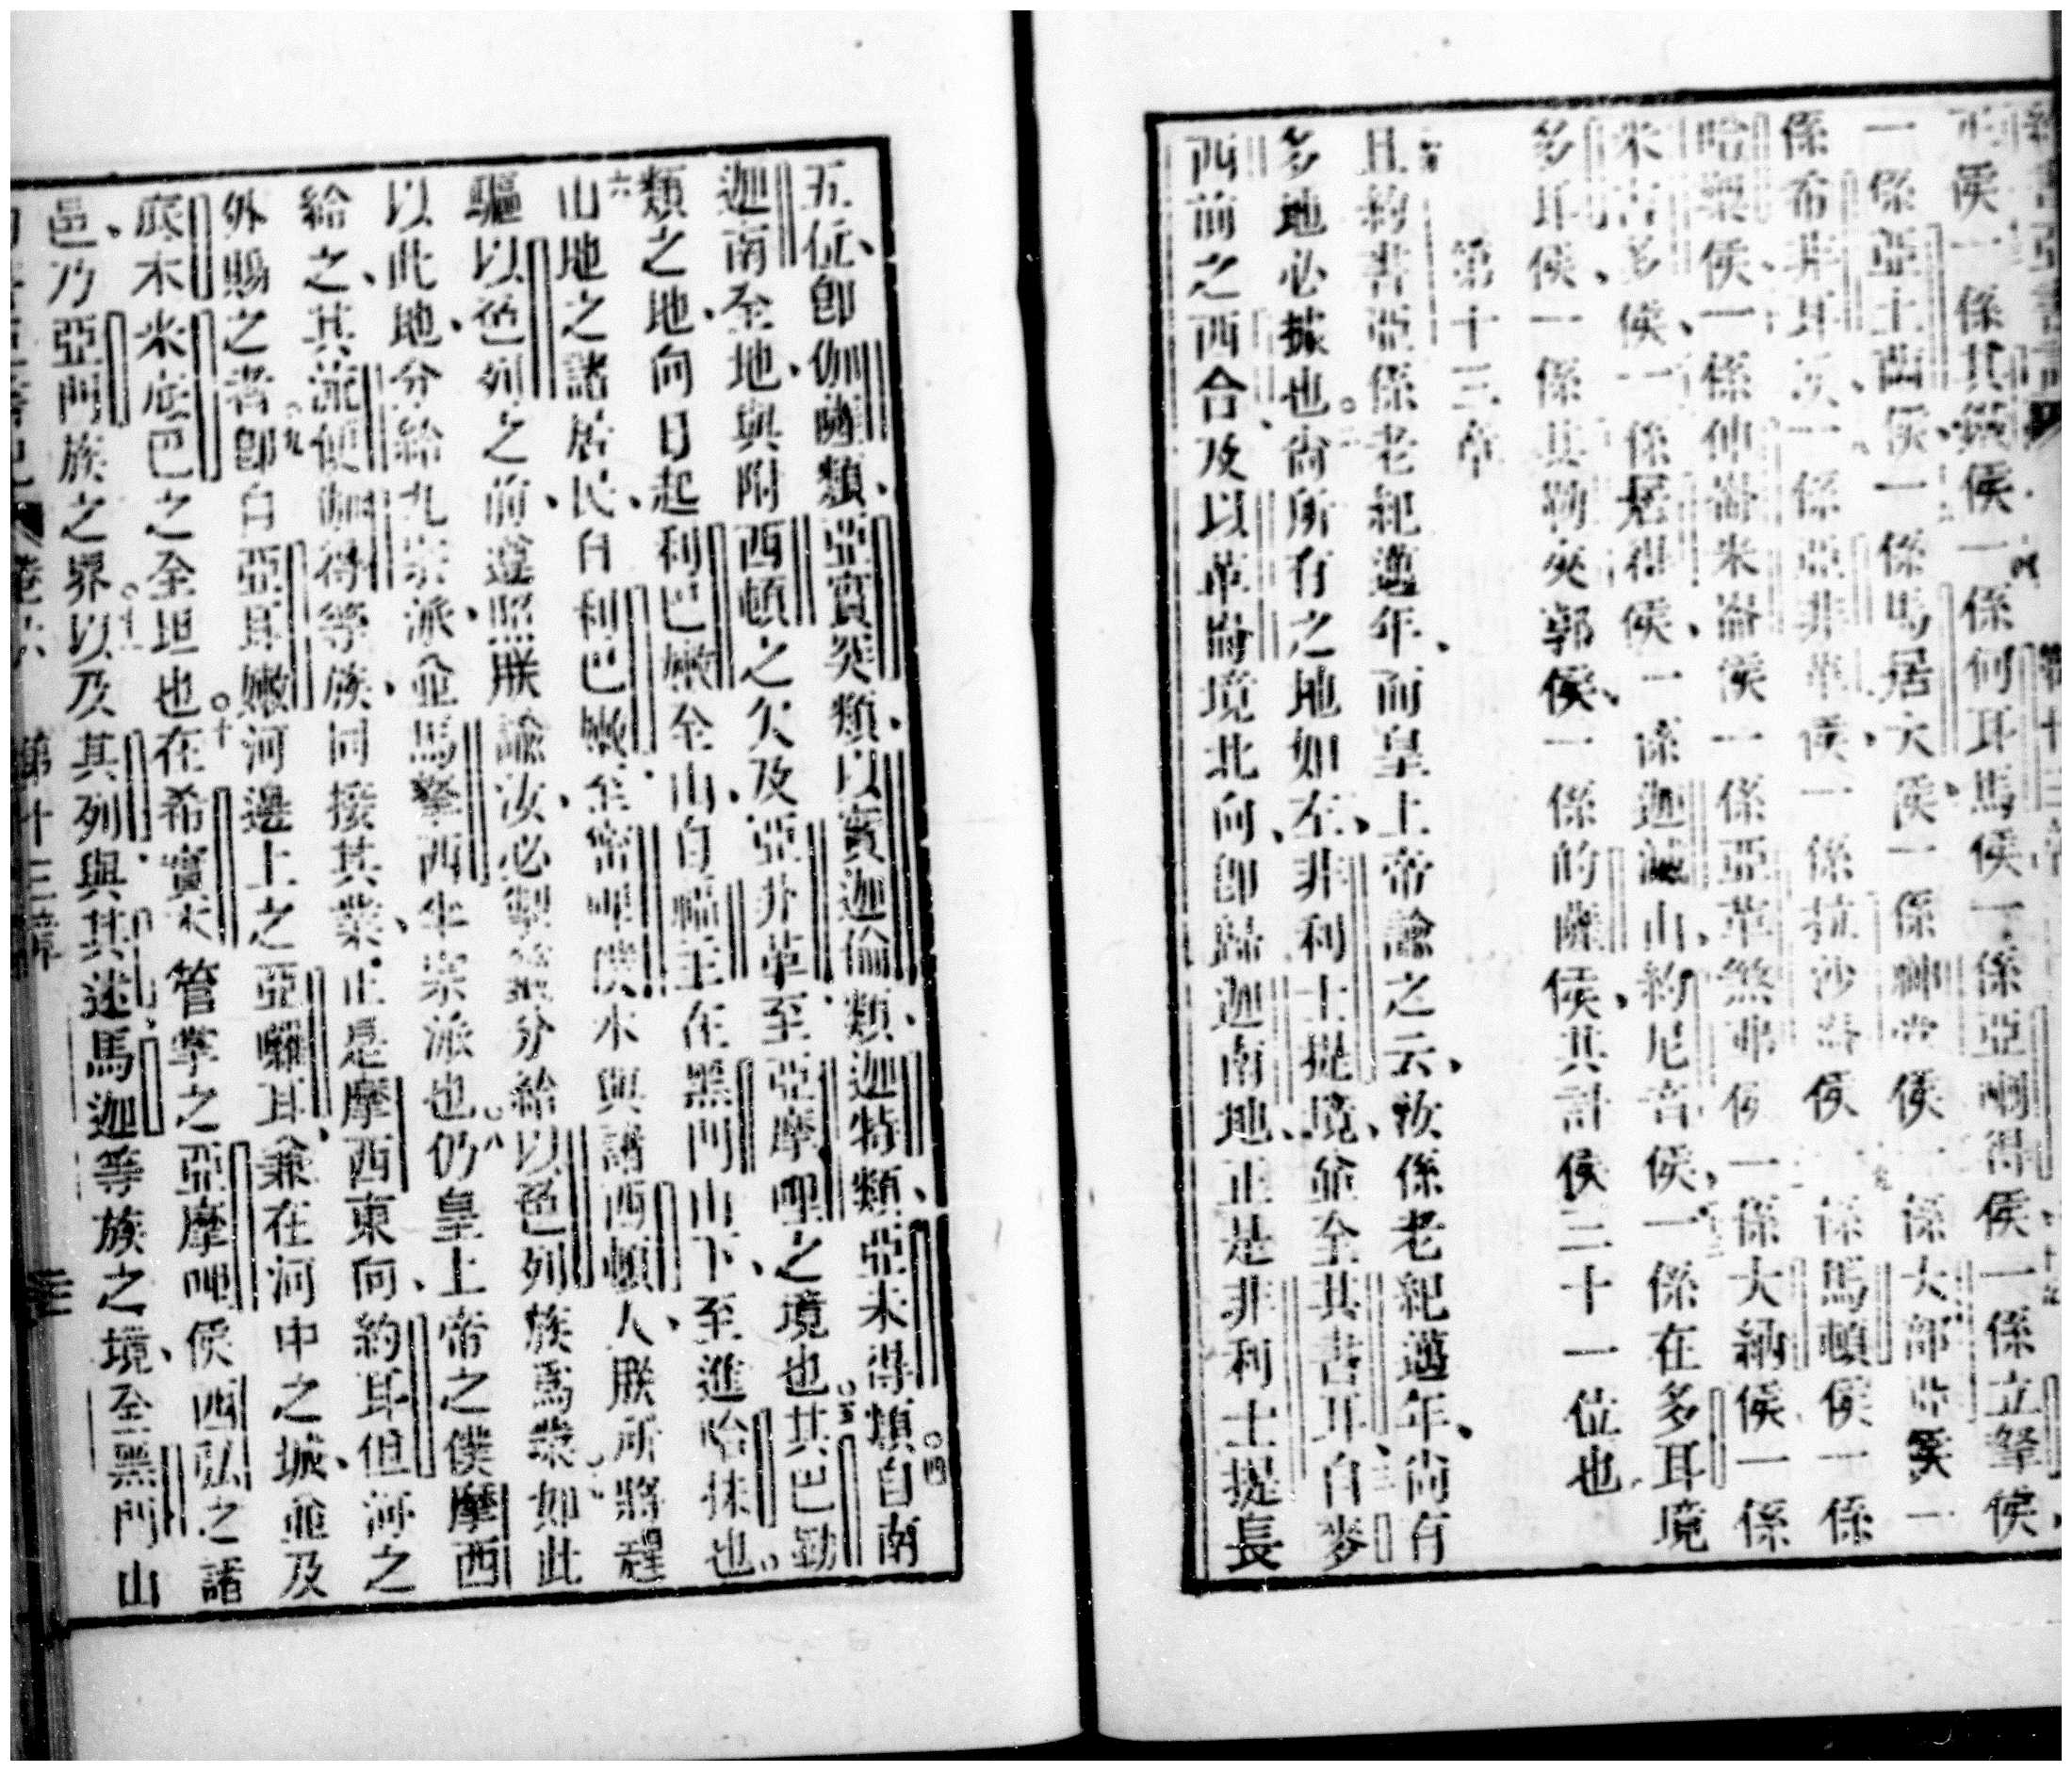 侯一係其氐侯一係何耳馬侯一係亞喇得侯一係立拏侯
一係亞土嵐侯一係馬居大侯一係神侯一係大部亞侯一
係希非耳侯一係亞非革侯一係拉沙侯一係馬頓侯一係
侯一係伸崙米崙侯一係亞革煞弗侯一係大納侯一係
米吉多侯一係居侯一係迦滅山約尼音侯一係在多耳境
多耳侯一係其勒夾郭侯一係的薩侯共計侯三十一位也
第十三章
且約書亞係老紀邁年而皇上帝諭之云汝係老紀邁年尚有
多地必據也尚所有之地如左非利士提境並全其書耳自麥
西前之西合及以革崙境北向即歸迦南地正是非利士提長
五位即伽薩類亞實突類以實迦倫類迦特類亞未得類自南
迦南全地與附西頓之穴及亞弁革至亞摩哩之境也其巴勒
類之地向日起利巴嫩全山自幅王在黑門山下至進哈抹也
山地之諸居民自利巴嫩至密哩僕水與諸西頓人朕所將逞
驅以色列之前遵照朕諭汝必製分給以色列族為業如此
以此地分給九宗派並馬拏西半宗派也仍皇上帝之僕摩西
給之其流便伽得等族同接其業正是摩西東向約耳但河之
外賜之者即自亞耳嫩河邊上之亞囉耳兼在河中之城並及
底木米底巴之全坦也在希實本管掌之亞摩哩侯西弘之諸
邑乃亞門族之界以及其列與其述馬迦等族之境至黑門山
第十三章